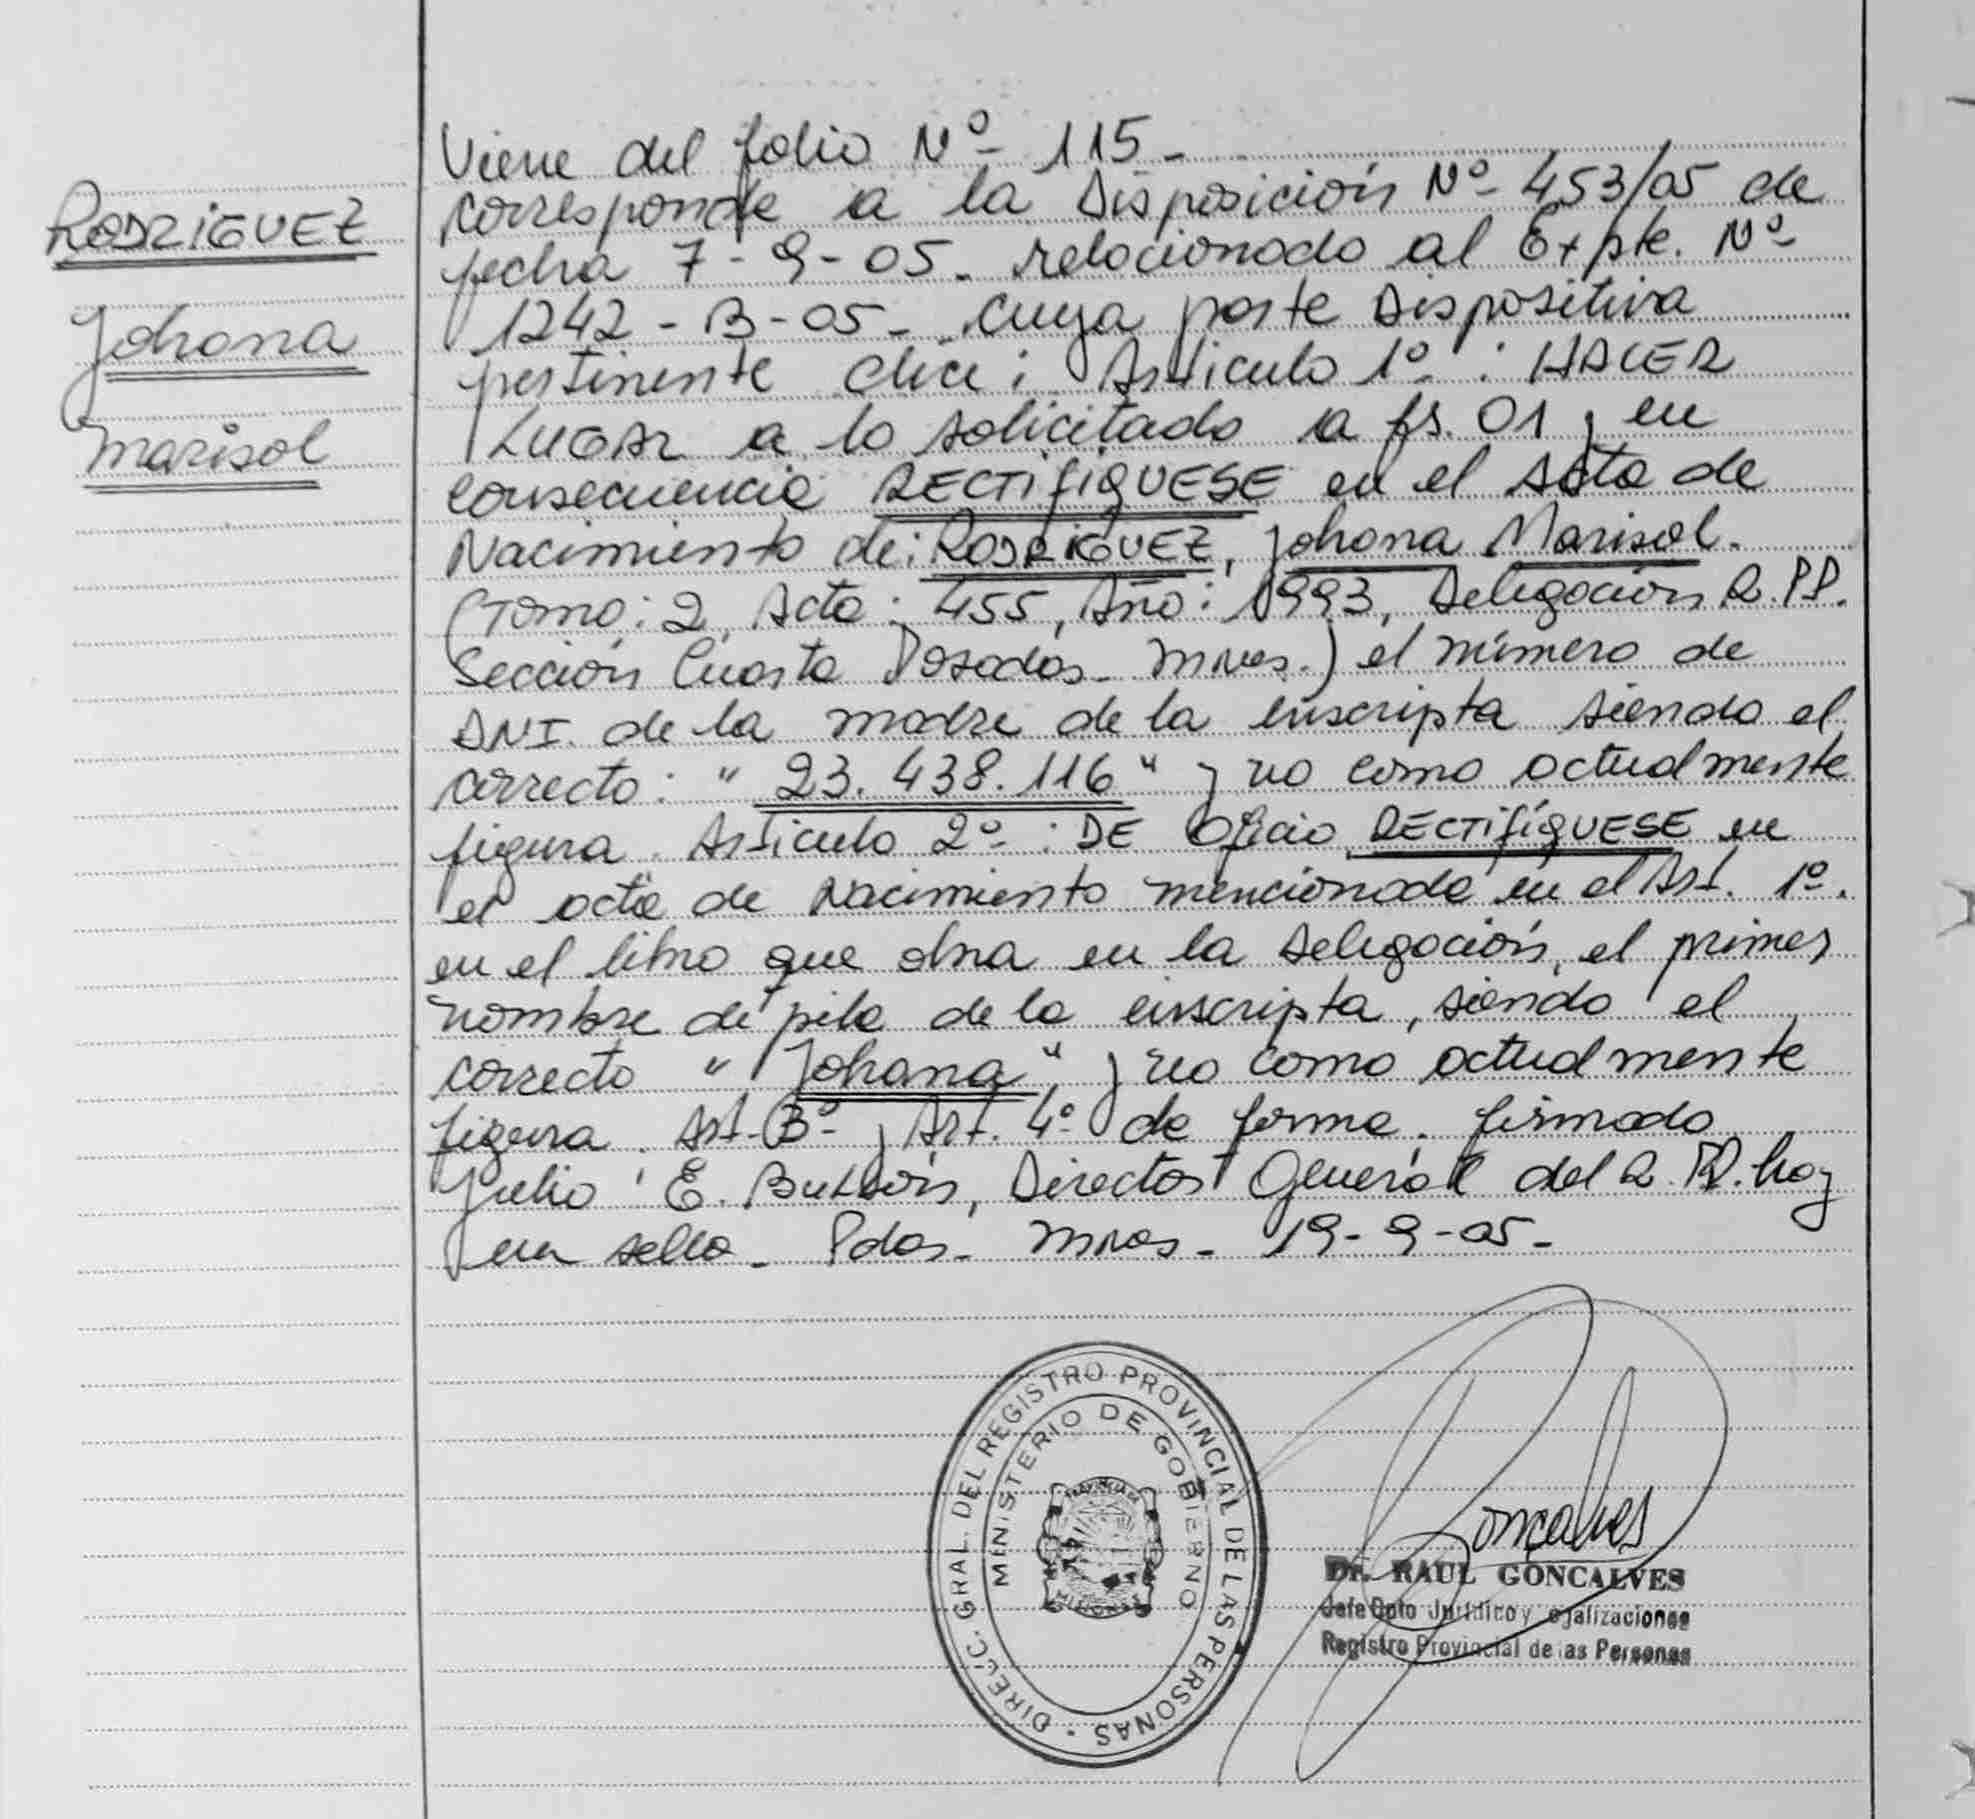 RODRIGUEZ
Johana
Marisol
Viene del folio Nº 115-
corresponde a la Disposición Nº 453/05 de
fecha 7-9-05- relacionado al Expte. Nº
1242-B-05- cuya parte Dispositiva
pertinente dice: Articulo 1º: HACER
LUGAR a lo solicitado a fs. 01 y en
consecuencia RECTIFIQUESE en el Acta de
Nacimiento de: RODRIGUEZ, Johana Marisol.
(Tomo: 2, Acta: 455, Año: 1993, Delegación R.PP.
Sección Cuarta Posadas- Mnes.) el número de
DNI. de la madre de la inscripta siendo el
correcto: "23.438.116" y no como actualmente
figura. Articulo 2º: DE Oficio RECTIFÍQUESE en
el acta de Nacimiento mencionada en el Art. 1º.
en el libro que obra en la Delegación, el primer
nombre de pila de la inscripta, siendo el
correcto "Johana", y no como actualmente
figura. Art. 3º y Art. 4º de forma. firmado
Julio E. Director General del R.PP. hay
un sello- Pdas- Mnes- 19-9-05-
DIRECC. GRAL. DEL REGISTRO PROVINCIAL DE LAS PERSONAS
MINISTERIO DE GOBIERNO
Goncalves
Dr. RAUL GONCALVES
Jefe Dpto Jurídico y egalizaciones
Registro Provincial de as Personas